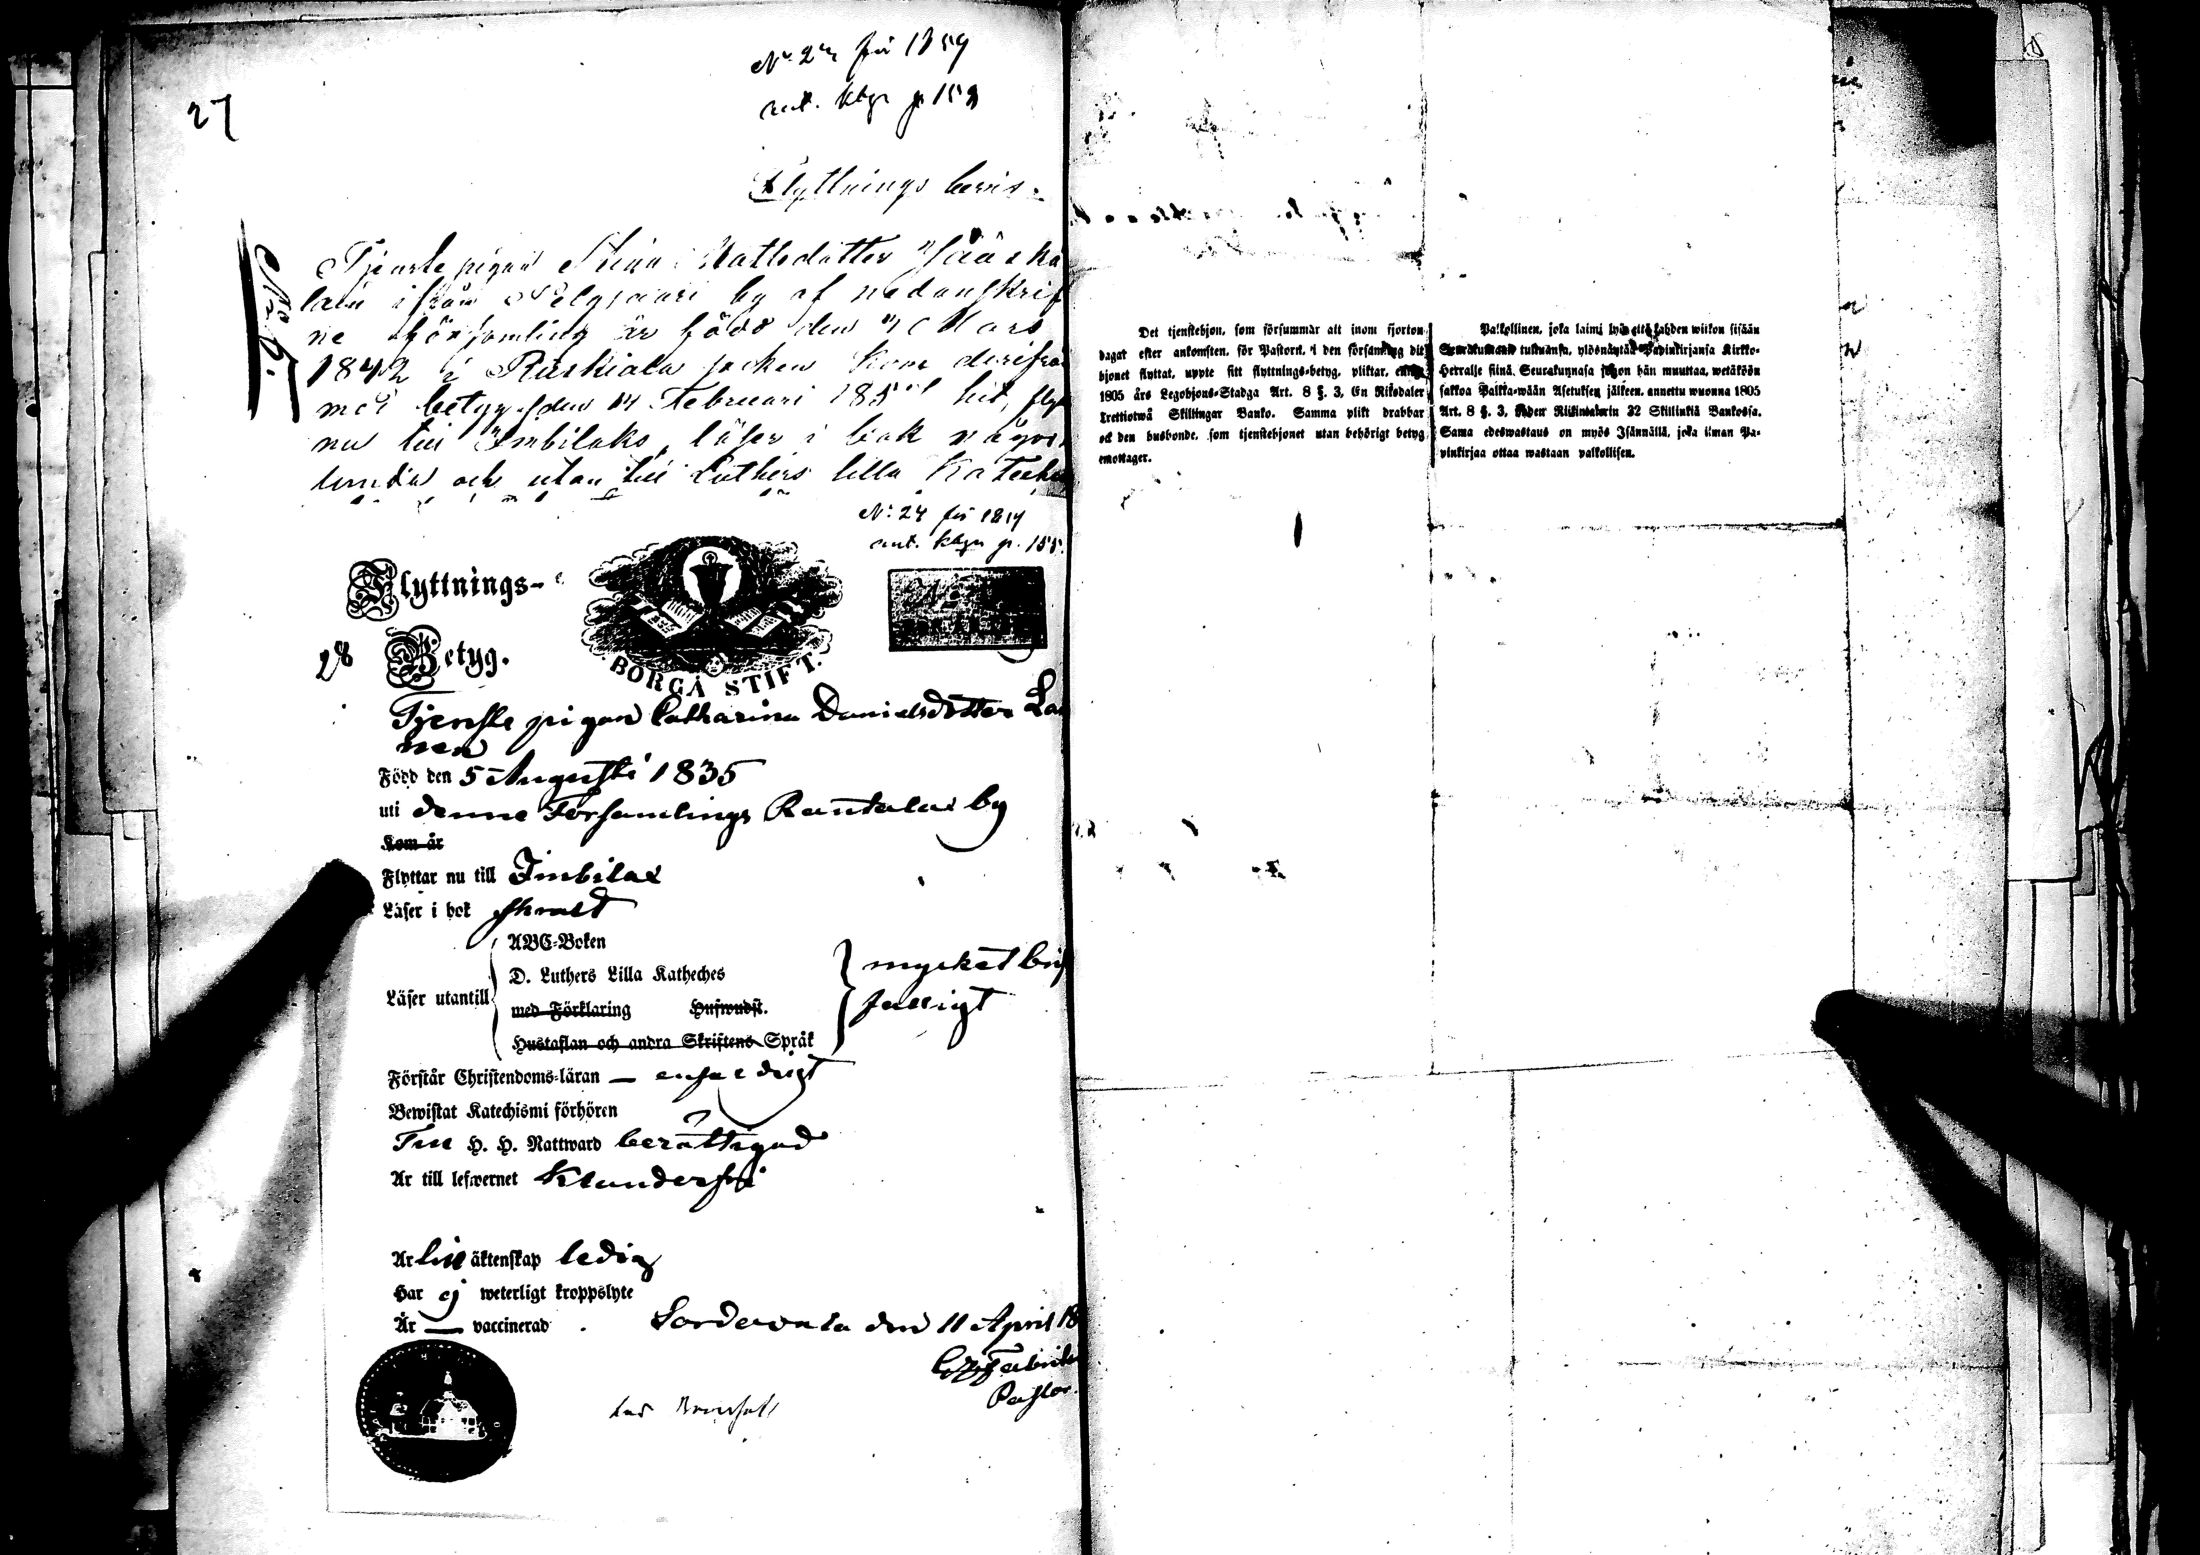 27
för 1859
ant. kbgn p 158
Flyttnings bevis
Tjenste pigan Stina Mattsdotter Jääskä
lain ifrån by af nedanskrif
ne församling är född den Mars
1842 i Ruskiala socken kom derifrån
med betyg den 14 Februari hit, fly
nu till Imbilaks, läser i bok någor
lunda och utan till Luthers lilla Kateche
N: 27 för
ant. kbgn p. 155.
Flyttnings-
Betyg.
28
BORGÅ STIFT.
Tjenste pigan Catharina Danielsdotter La
nen
Född den 5 Augusti 1835
uti denne Församlings Rantalax by
Kom år
Flyttar nu till Imbilax
Läser i bok svagt
Läser utantill
ABC-Boken
D. Luthers Lilla Katheches
med Förklaring Huswudst.
Hustaflan och andra Skriftens Språk
mycket brist
fälligt
Förstår Christendoms-läran — enfaldigt
Bewistat Katechismi förhören
Till H. H. Nattward berättigad
Är till lefwernet klanderfri
Är till äktenskap ledig
Har ej weterligt kroppslyte
Är — vaccinerad
Sordavala den 11 April 18
Pastor.
Det tjenstehjon, som försummar att inom fjorton
dagar efter ankomsten, för Pastorn, i den församling dit
hjonet flyttat, uppte sitt flyttnings-betyg, pliktar, enligt
1805 års Legohjons-Stadga Art. 8 §. 3, En Riksdaler
trettiotwå Skillingar Banko. Samma plikt drabbar
ock den husbonde, som tjenstehjonet utan behörigt betyg
emottager.
Palkollinen, joka laimi lyö että kahden wiikon sisään
Seurakuntaan tultuansa, ylösnäyttää Papinkirjansa Kirkko-
Herralle siinä Seurakunnasa johon hän muuttaa, wetäköön
sakkoa Palkka-wään Asetuksen jälkeen, annettu wuonna 1805
Art. 8 §. 3, yhden Riikintalarin 32 Skillinkiä Bankossa.
Sama edeswastaus on myös Isännällä, joka ilman Pa-
pinkirjaa ottaa wastaan palkollisen.